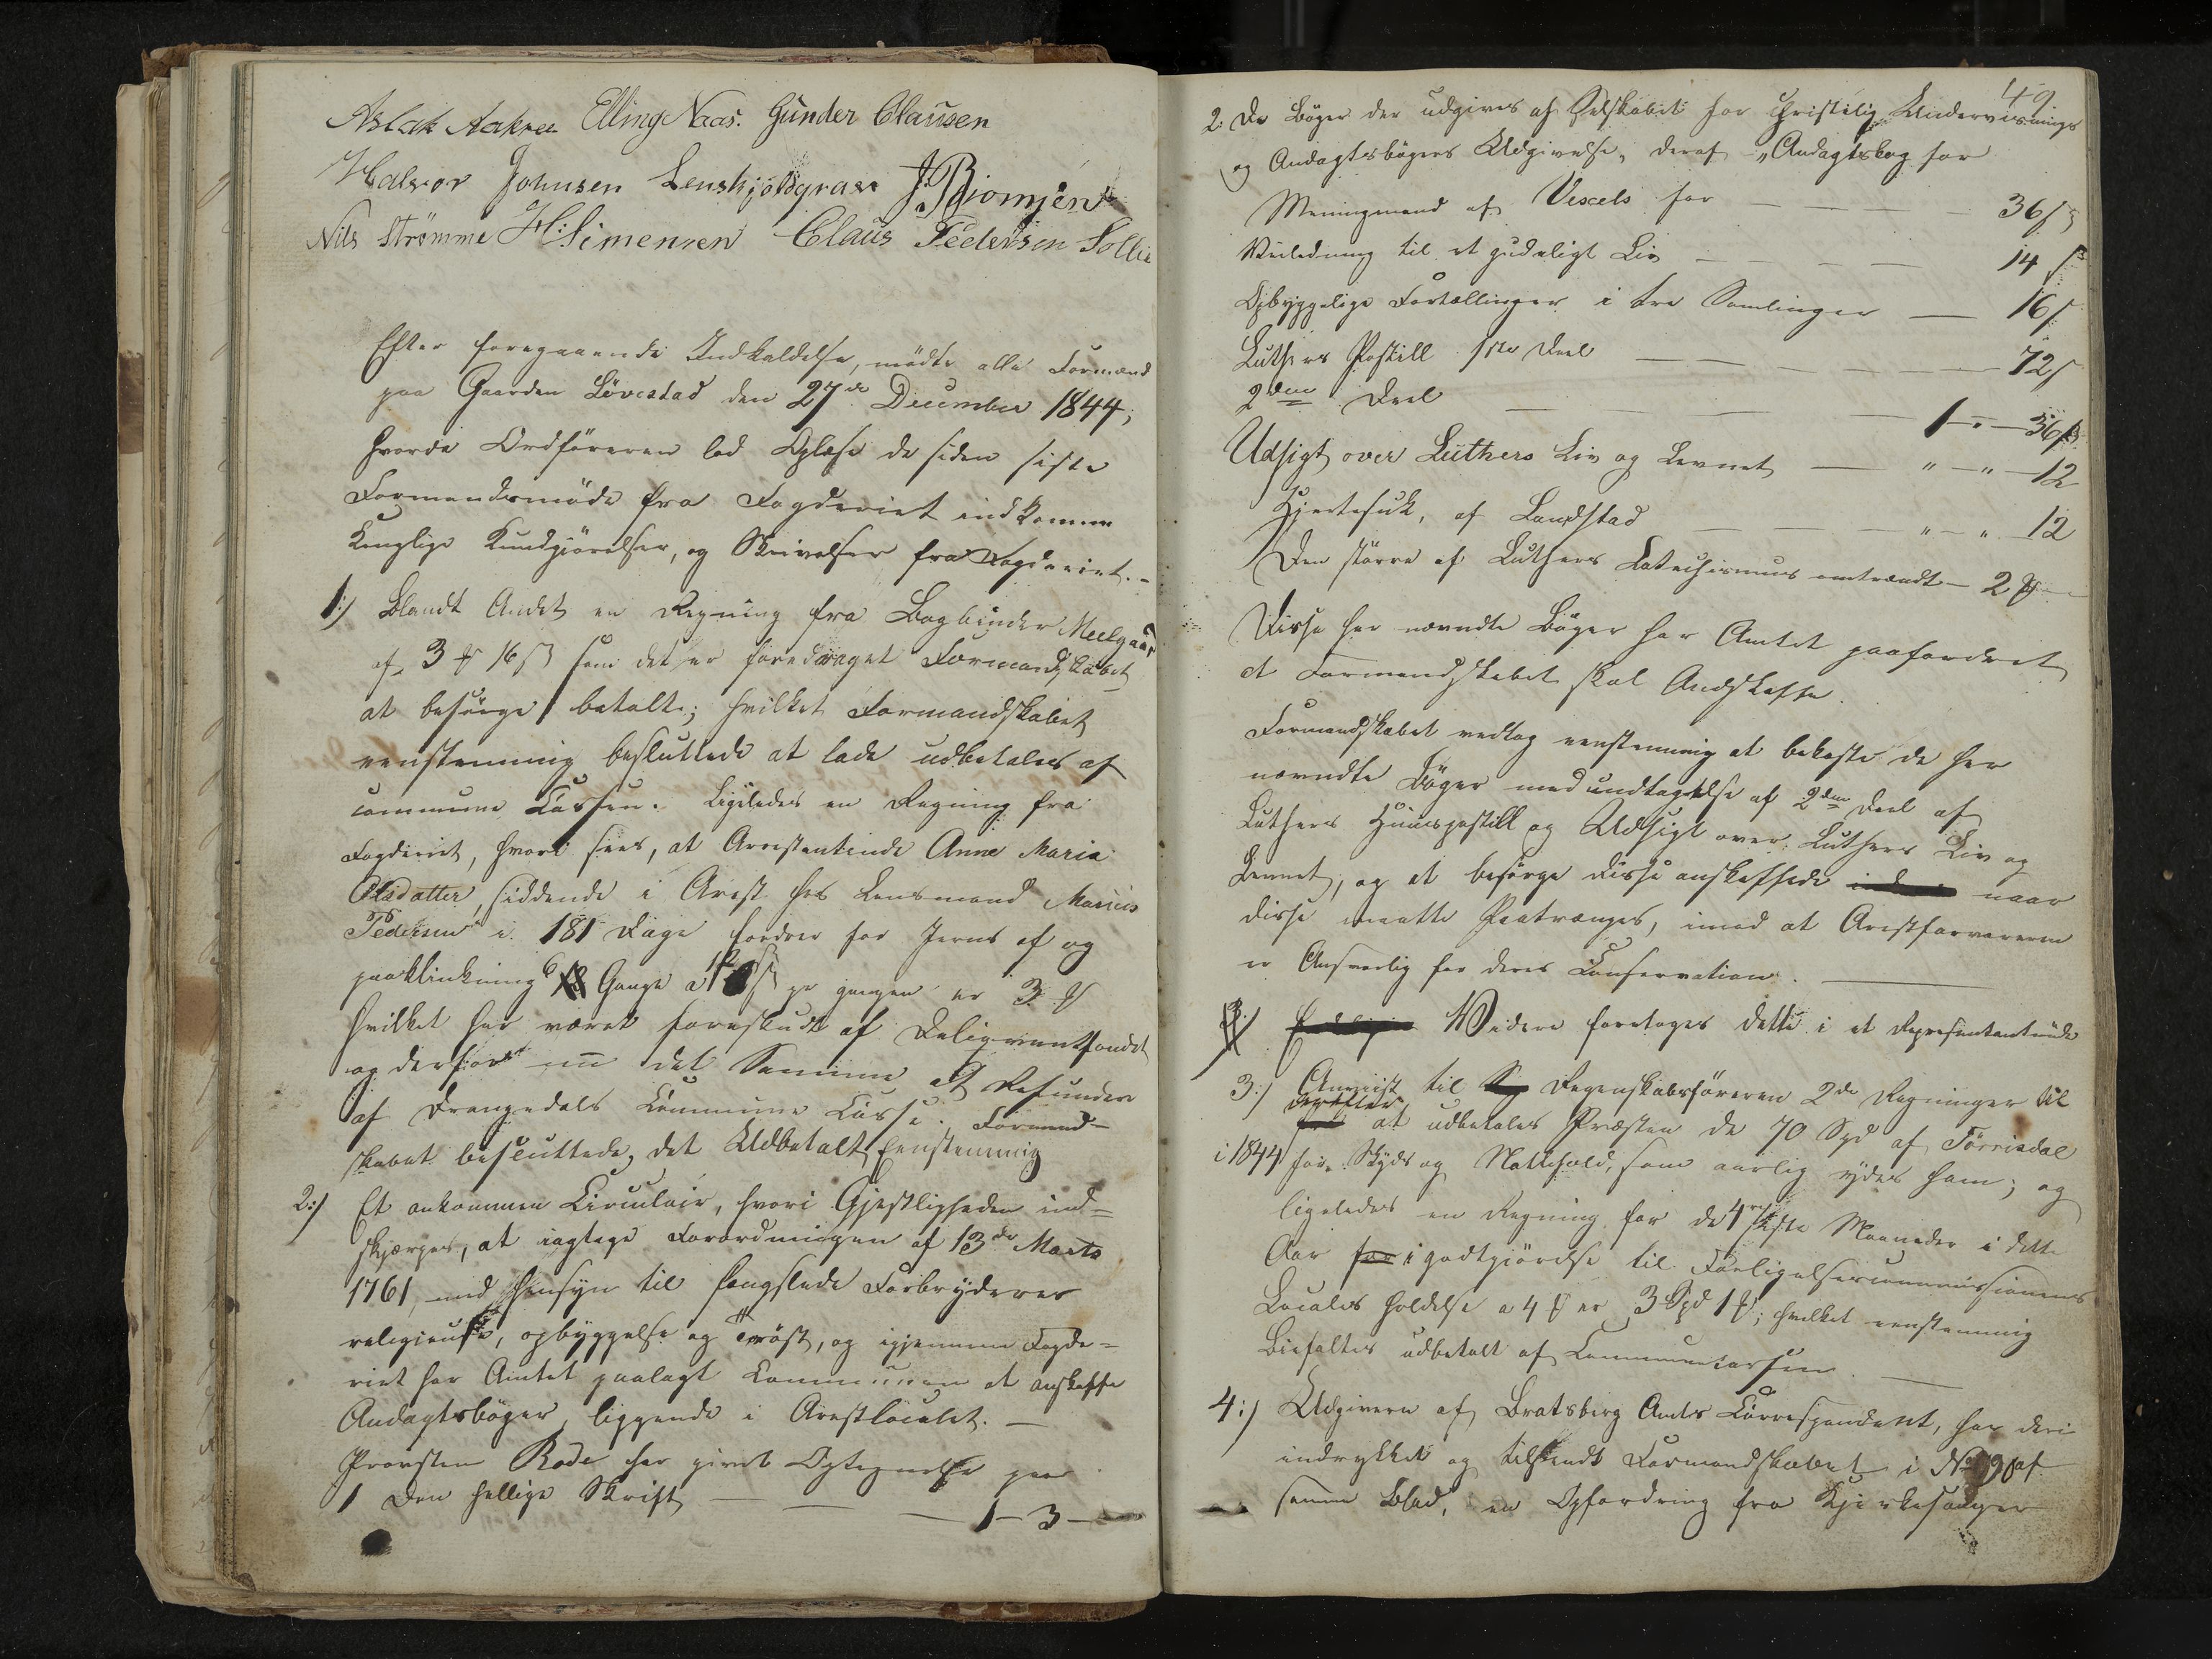 Aslak Aakre Elling Naas. Gunder Clausen
Halvor Johnsen Lenskjoldgrav J. Biornsen
Nils Strømme H. Simensen Claus Pedersen Sollie
Efter foregaaende Indkaldelse, mødte alle Formænd
paa Gaarden Løvestad den 27de December 1844;
hvorda Ordføreren lod Oplæse de siden siste
Formandsmøde fra Fogderiet indkomne
Konglige Kundgjørelser, og Skrivelser fra Fogderiet. -
1:/ Blandt Andet en Regning fra Bogbinder Melgaar
af 3 ₰ 16 ß som det er foredraget Formandskabet
at besørge betalt; hvilket Formandskabet
eenstemmig besluttede at lade udbetales af
commune Cassen. Ligeledes en Regning fra
Fogderiet, hvori sees, at Arrestantinde Anne Maria
Olsdatter, siddende i Arest hos Lensmand Marius
Pedersen i 181 Dage fordrer for Jerns af og
paaklinkning 6 Gange a 12 ß pr gangen er 3 ₰
hvilket har været forskudt af Delinqventfondet
og derfor nu det Samme at Refundere
af Drangedals Commune Casse. Formand-
skabet besluttede det Udbetalt Eenstemmig
2:/ Et ankommen Circulair, hvori Gjestligheden ind=
skjærpes, at iagtage Forordningen af 13de Marts
1761, med Hensyn til fængslede Forbryderes
religieuse, opbyggelse og Trøst, og igjennem Fogde=
riet har Amtet paalagt Communen at anskaffe
Andagtsbøger, liggende i Arestlocalet. —
Provsten Rode har givet Optegnelse paa
1 Den hellige Skrift — — — 1 - 3 —
49
2. De Bøger der udgives af Selskabet for Christelig Undervisnings
og Andagtsbøgers Udgivelse, deraf „Andagtsbog for
Meningmand af Vexels for — — — 36 ß
Veiledning til et gudeligt Liv — — — 14 ß
Opbyggelige Fortællinger i tre Samlinger — 16 ß
Luthers Postill 1ste Deel — — — 72 ß
2den Deel — — — 1 - " - 36 ß
Udsigt over Luthers Liv og Levnet — " - " - 12
Hjertesuk, af Landstad — — " - " 12
Den større af Luthers Catechismus omtrendt - 2 ₰ -
Disse her nævndte Bøger har Amtet paafordret
at Formandskabet skal Andskaffe.
Formandskabet vedtog eenstemmig at bekoste de her
nævndte Bøger med undtagelse af 2den Deel af
Luthers Huuspostill og Udsigt over Luthers Liv og
Levnet, og at besørge disse anskaffede naar
disse maatte Paatrænges, imod at Arestforvareren
er Ansvarlig for deres Conservation. —
Videre foretoges dette i et Repræsentantmøde
3:/ Anviist til Regenskabsføreren 2de Regninger til
at udbetales Præsten de 70 Spd af Tørrisdal
i 1844 for Skyds og Nattehold, som aarlig ydes ham; og
ligeledes en Regning for de 4re siste Maaneder i dette
Aar for i godtgjørelse til Forligelsescommissionens
Locales holdelse a 4 ₰ er 3 Spd 1 ₰; hvilket eenstemmig
Biefaltes udbetalt af Communecassen. —
4:/ Udgiveren af Bratsberg Amts Correspondent, har deri
indrykket og tilsendt Formandskabet i No 98 af
samme Blad, en Opfordring fra Kjirkesanger